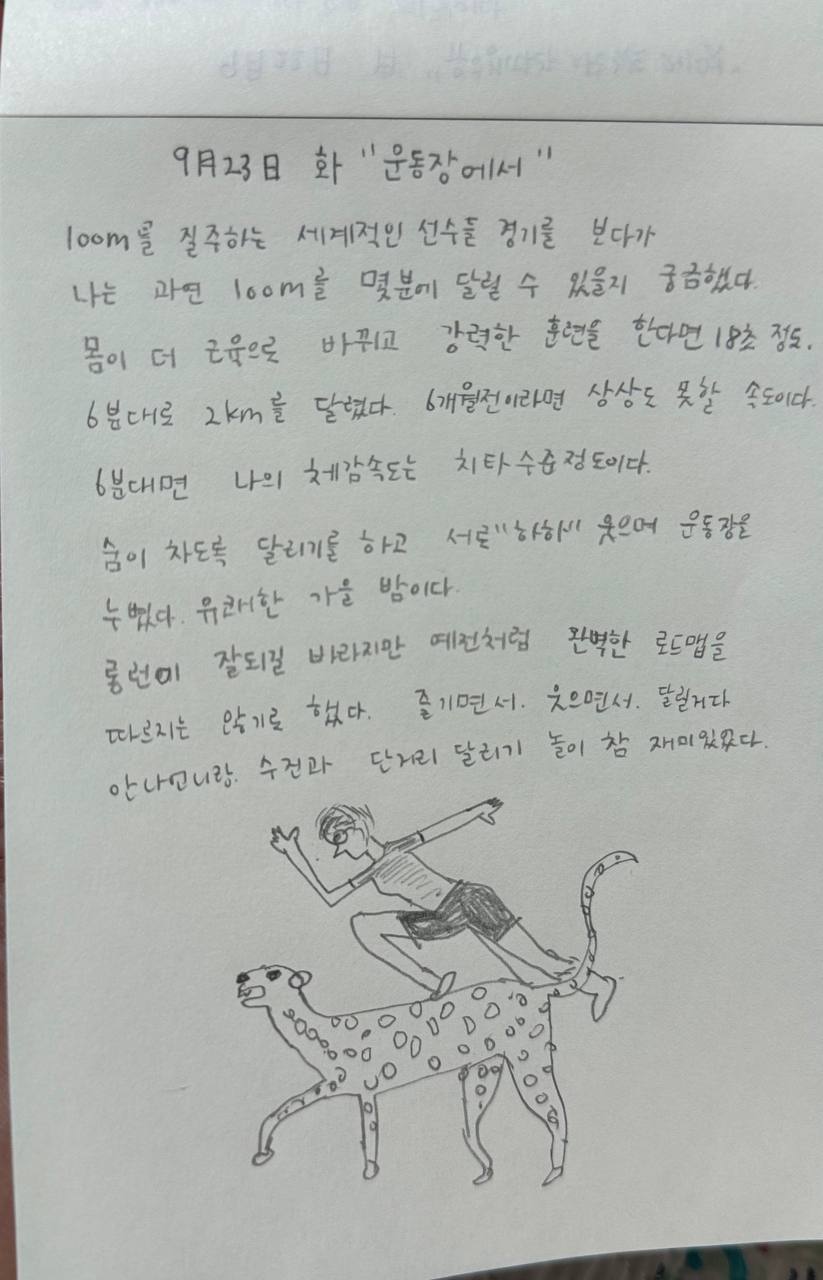 9月23日 화 "운동장에서"
100m를 질주하는 세계적인 선수들 경기를 보다가
나는 과연 100m를 몇분에 달릴 수 있을지 궁금했다.
몸이 더 근육으로 바뀌고 강력한 훈련을 한다면 18초 정도.
6분대로 2km를 달렸다. 6개월전이라면 상상도 못할 속도이다.
6분대면 나의 체감속도는 치타수준정도이다.
숨이 차도록 달리기를 하고 서로"하하" 웃으며 운동장을
누볐다. 유쾌한 가을 밤이다.
롱런이 잘되길 바라지만 예전처럼 완벽한 로드맵을
따르지는 않기로 했다. 즐기면서. 웃으면서. 달릴거다
안나언니랑. 수전과 단거리 달리기 놀이 참 재미있었다.